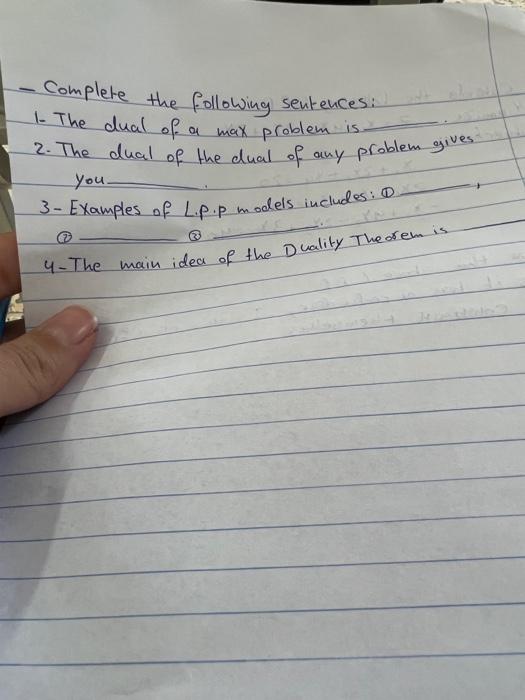 - Complete the following sentences:
1- The dual of a max problem is ______.
2. The dual of the dual of any problem gives
you ______.
3- Examples of L.P.P models includes: ① ______,
② ______ ③ ______.
4- The main idea of the Duality Theorem is ______